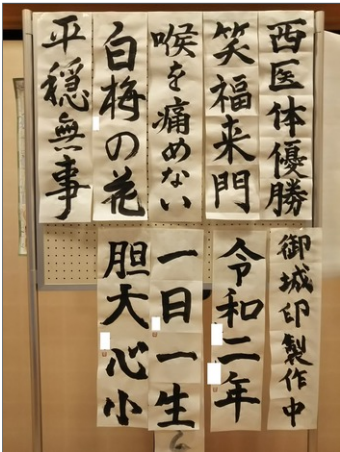 西医体優勝
笑福来門
喉を痛めない
白梅の花
平穏無事
御城印製作中
令和二年
一日一生
胆大心小